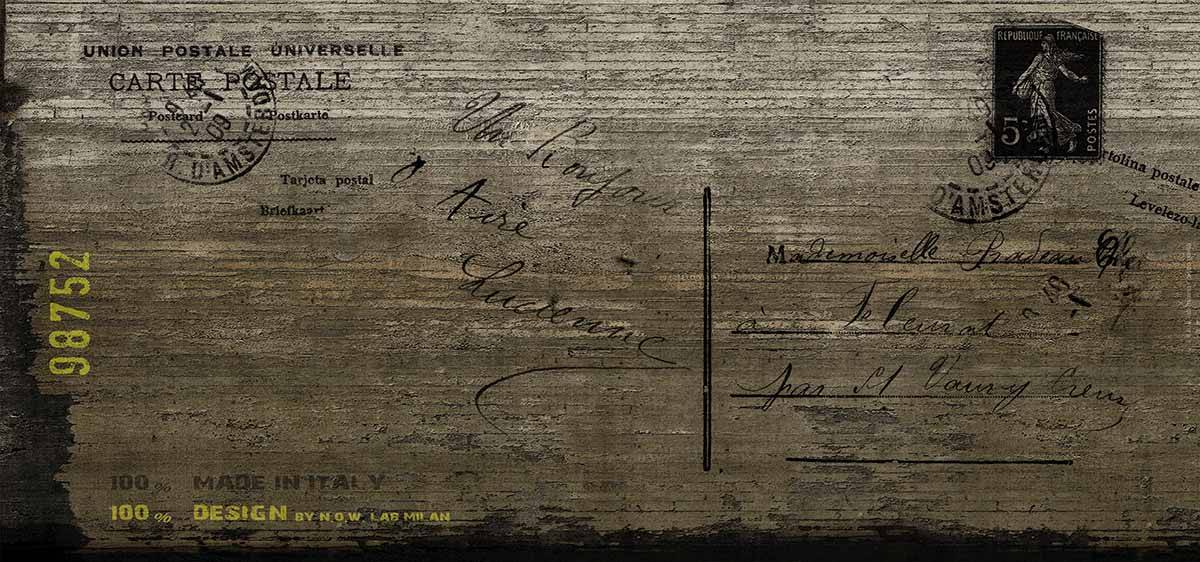 UNION POSTALE UNIVERSELLE
CARTE POSTALE
Postcard Postkarte
Tarjeta postal
Briefkaart
D'AMSTERD
Un Bonjour
Lucienne
98752
REPUBLIQUE FRANÇAISE
5c
POSTES
D'AMSTER
rtolina postale
Levelezo-l
Mademoiselle
à Fleurat
par St Vaury Creuse
100 % MADE IN ITALY
100 % DESIGN BY N.O.W. LAB MILAN